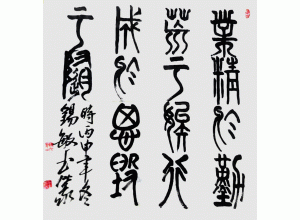 業精於勤
荒于嬉行
成於思毀
于隨
時丙申年冬
錫